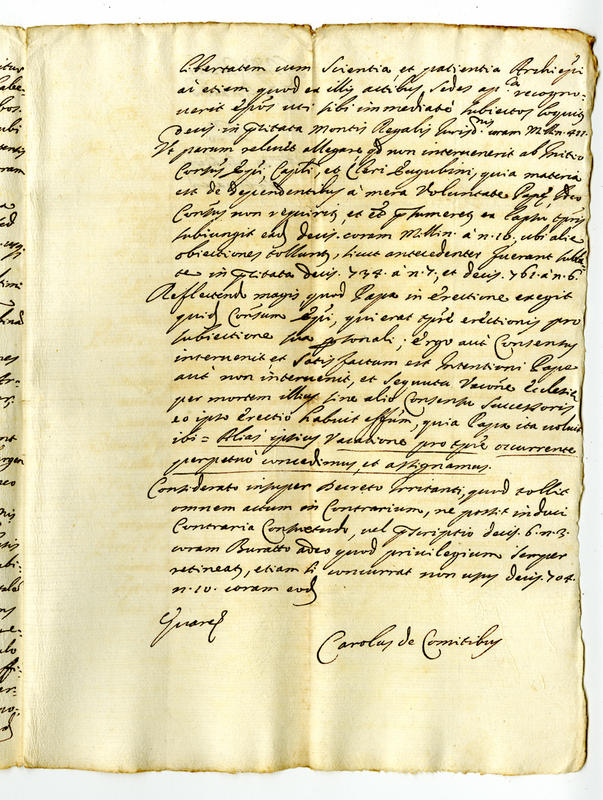 libertatem cum scientia, et patientia Archiepi
ac etiam quod ex illis actibus sedes ap.ca recogno-
uerit epos uti sibi immediatè subiectos loquit
decis. in
Vt parum releuet allegare, qd non interuenerit ab initio
Consus Epi, Capli, et Cleri Eugubini, quia materia
est de dependentibus à mera voluntate Papę, ideo
Consus non requirit, et et psumeret ex lapsu tpris
subiungit ead decis. coram Mellin. à n. 16, ubi aliæ
obiectiones tollunt, sicut antecedenter fuerant subla
te in decis. 734. à n. 7, et decis. 761. à n. 6.
Reflectendo magis quod Papa in erectione exegit
quid Consum Epi, qui erat tpre erectionis pro
subiectione sua psonali; ergo aut Consensus
interuenit, et satisfactum est intentioni Papæ
aut non interuenit, et sequuta Vacoñe Ecclesiæ
per mortem illius sine alio Consensu successoris
eo ipso erectio habuit effum, quia Papa ita uoluit
ibi = Alias ipsius Vacatione pro tpre occurrente
perpetuò concedimus, et assignamus.
Considerato insuper Decreto irritanti, quod tollit
omnem actum in Contrarium, ne possit induci
Contraria Consuetudo, uel pscriptio decis. 6. n. 3.
coram Buratto adeo quod priuilegium semper
retineat, etiam si concurrat non usus decis. 704.
n. 10. coram eod
Quare
Carolus de Comitibus